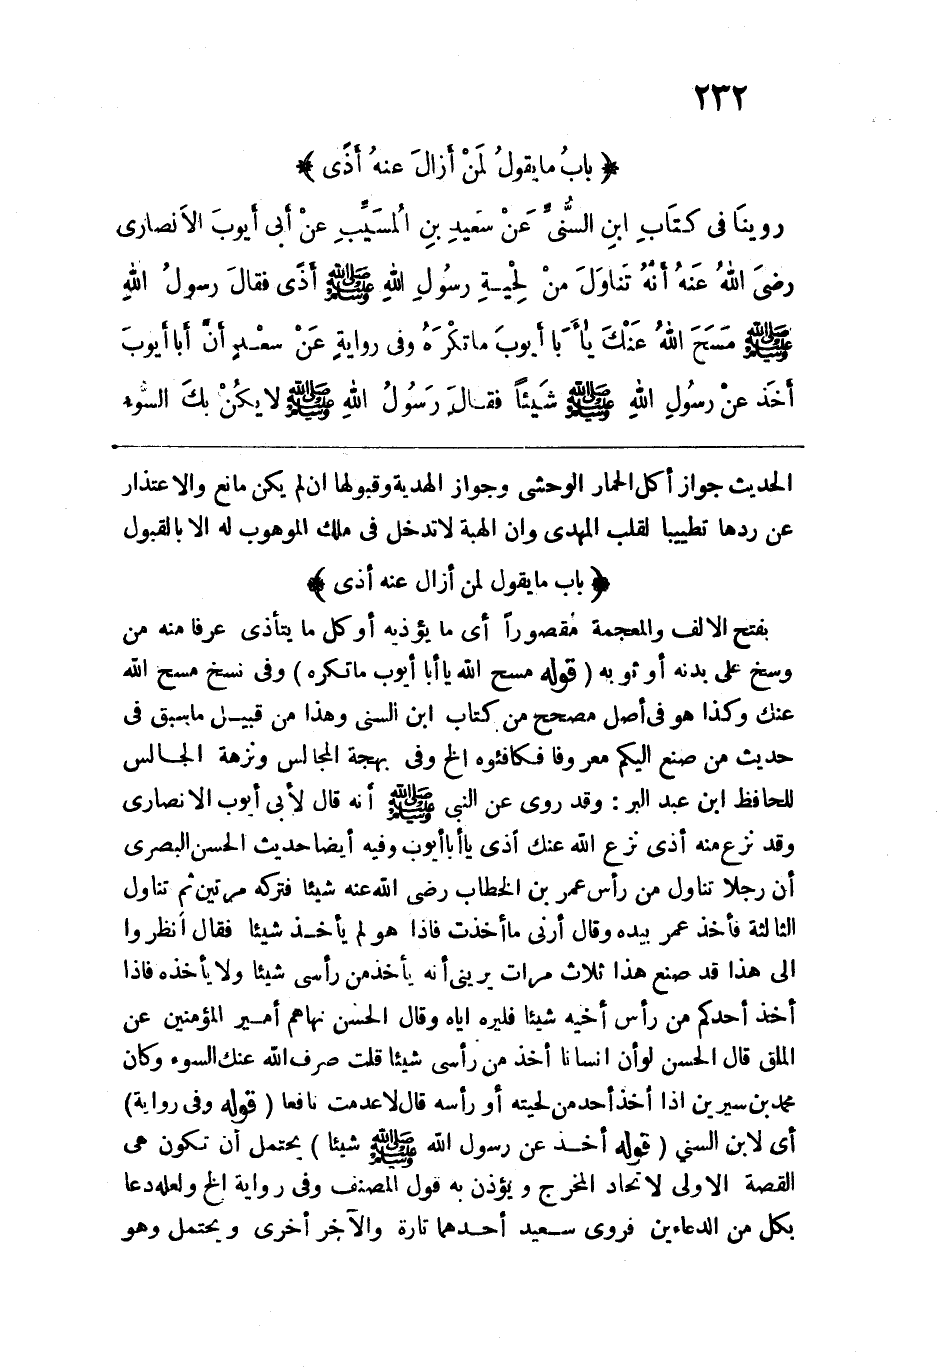 ٢٣٢
﴿ بابُ ما يقولُ لمَنْ أزالَ عنهُ أذًى ﴾
روينَا فى كتَابِ ابنِ السُّنىِّ عَنْ سَعيدِ بنِ المُسَيَّبِ عنْ أبى أيوبَ الانصارى
رضىَ اللهُ عَنهُ أنَّهُ تَناوَلَ منْ لِحْيـةِ رسُولِ اللهِ ﷺ أذًى فقالَ رسولُ اللهِ
ﷺ مَسَحَ اللهُ عَنْكَ يَاأَبَا أيوبَ ماتكْرَهُ وفى روايةٍ عَنْ سعْـدٍ أنَّ أبا أيوبَ
أخَذ عنْ رسُولِ اللهِ ﷺ شَيئاً فقـالَ رَسُولُ اللهِ ﷺ لا يكُنْ بكَ السُّوء
الحديث جواز أكل الحمار الوحشى وجواز الهدية وقبولها ان لم يكن مانع والاعتذار
عن ردها تطييبا لقلب المهدى وان الهبة لاتدخل فى ملك الموهوب له الا بالقبول
﴿ باب ما يقول لمن أزال عنه أذى ﴾
بفتح الالف والمعجمة مقصوراً أى ما يؤذيه أو كل ما يتأذى عرفا منه من
وسخ على بدنه أو ثوبه ( قوله مسح الله ياأبا أيوب ماتكره ) وفى نسخ مسح الله
عنك وكذا هو فى أصل مصحح من كتاب ابن السنى وهذا من قبيـل ماسبق فى
حديث من صنع اليكم معروفا فـكافئوه الخ وفى بهجة المجالس ونزهة الجـالس
للحافظ ابن عبد البر : وقد روى عن النبى ﷺ أنه قال لأبى أيوب الانصارى
وقد نزع منه أذى نزع الله عنك أذى ياأباأيوب وفيه أيضا حديث الحسن البصرى
أن رجلا تناول من رأس عمر بن الخطاب رضى الله عنه شيئا فتركه مرتين ثم تناول
الثالثة فأخذ عمر بيده وقال أرنى ماأخذت فاذا هو لم يأخـذ شيئا فقال أنظروا
الى هذا قد صنع هذا ثلاث مرات يرينى أنه يأخذ من رأسى شيئا ولا يأخذه فاذا
أخذ أحدكم من رأس أخيه شيئا فليره اياه وقال الحسن نهاهم أمـير المؤمنين عن
الملق قال الحسن لو أن انسانا أخذ من رأسى شيئا قلت صرف الله عنك السوء وكان
محمد بن سيرين اذا أخذ أحد من لحيته أو رأسه قال لاعدمت نافعا ( قوله وفى رواية)
أى لابن السني ( قوله أخـذ عن رسول الله ﷺ شيئا ) يحتمل أن تكون هى
القصة الاولى لاتحاد المخرج ويؤذن به قول المصنف وفى رواية الخ ولعله دعا
بكل من الدعاءين فروى سـعيد أحـدهما تارة والآخر أخرى ويحتمل وهو